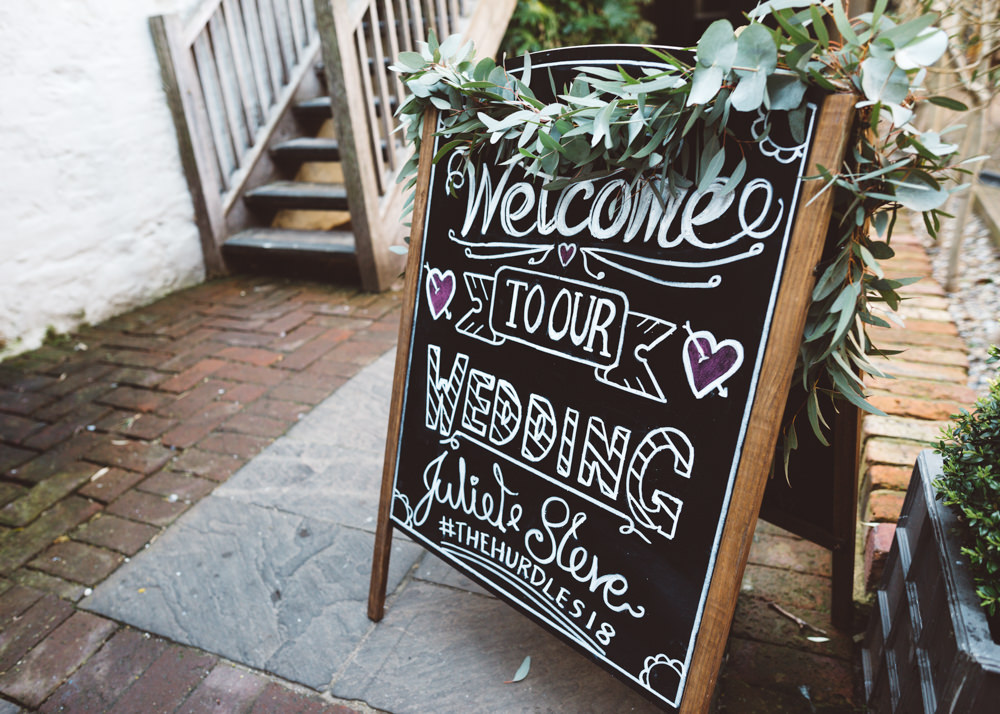 Welcome
TO OUR
WEDDING
Juliet & Steve
#THEHURDLES18